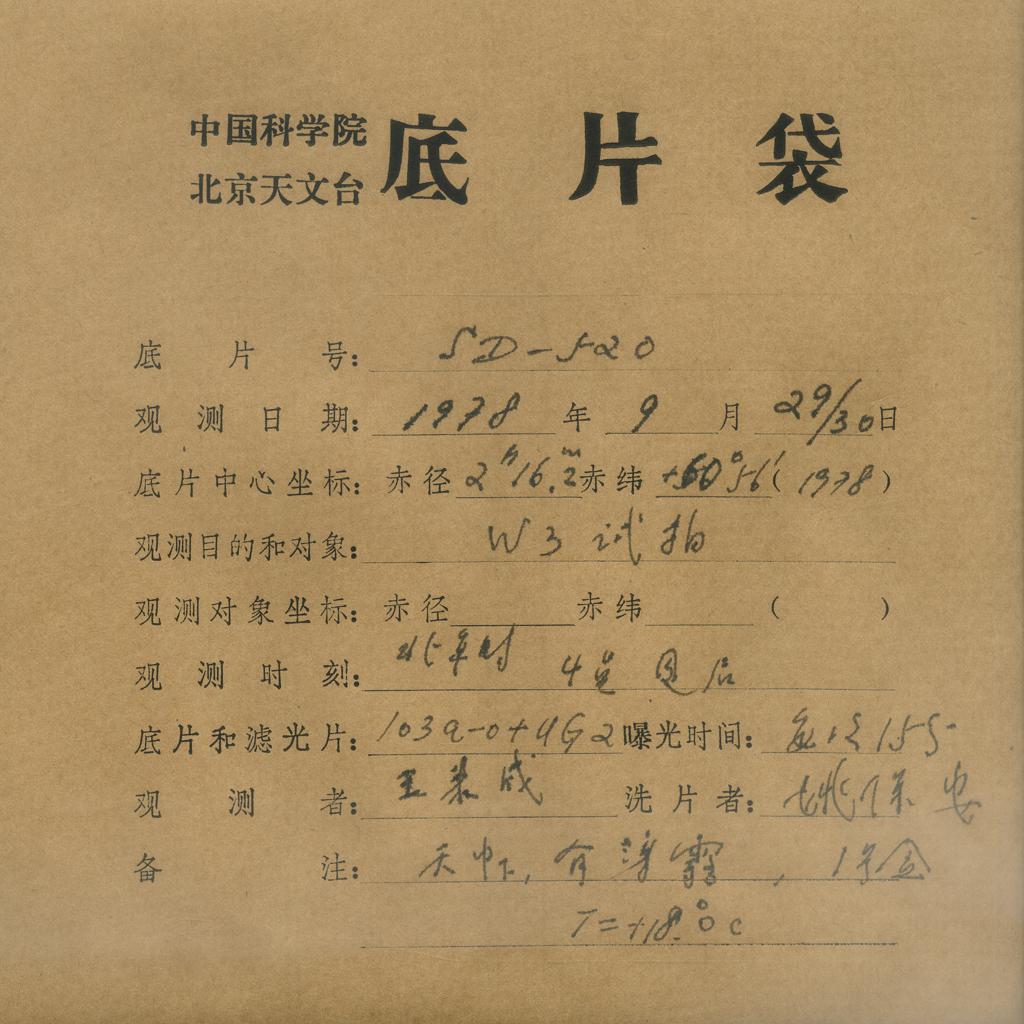 中国科学院
北京天文台
底片袋
底片号： SD-520
观测日期： 1978 年 9 月 29/30 日
底片中心坐标： 赤径 2ʰ16.ᵐ2 赤纬 +60°56′ (1978)
观测目的和对象： W3 试拍
观测对象坐标： 赤径 赤纬 ( )
观测时刻： 北京时 4
底片和滤光片： 103a-o+UG2 曝光时间： 15
观测者： 王 成 洗片者： 姚保安
备注： 天 ，有薄雾， 1号盒
T=+18.°0c